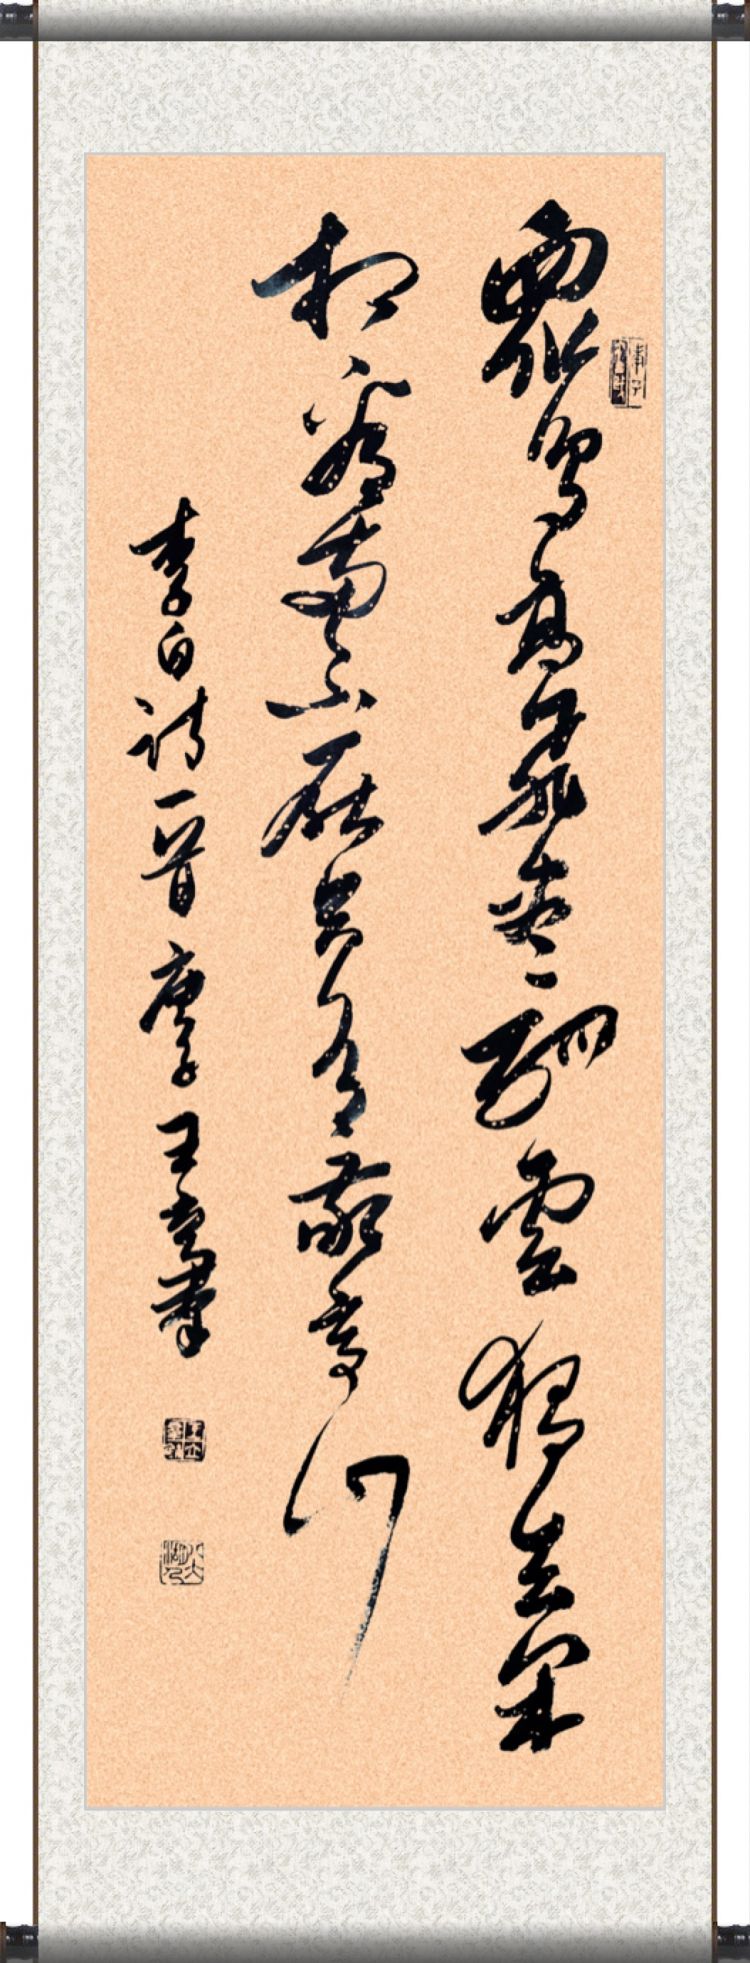 眾鳥高飛盡孤雲獨去閑
相看兩不厭只有敬亭山
李白詩一首 庚子 王